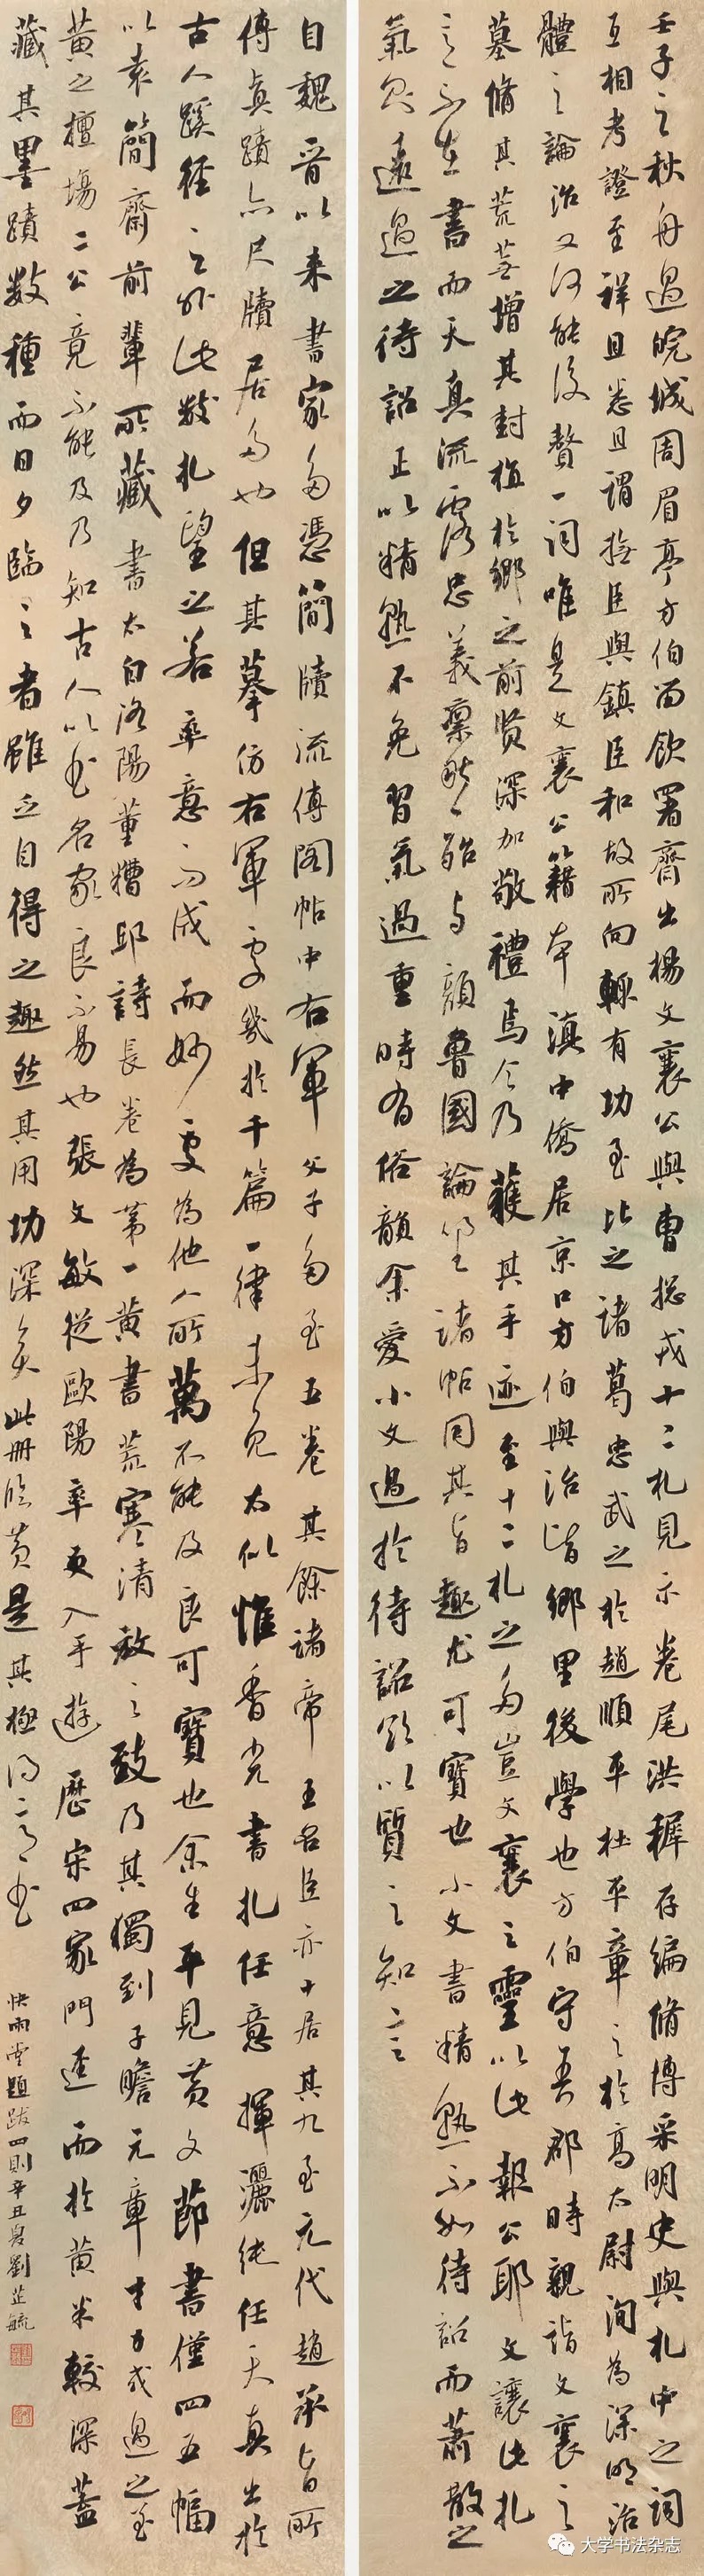 壬子之秋舟過皖城周眉亭方伯留飲署齋出楊文襄公與曹總戎十二札見示卷尾洪稺存編脩博采明史與札中之詞
互相考證至詳且悉且謂撫臣與鎮臣和故所向輒有功至比之諸葛忠武之於趙順平杜平章之於高太尉洵為深明治
體之論治又何能復贅一詞唯是文襄公籍本滇中僑居京口方伯與治皆鄉里後學也方伯守吾郡時親詣文襄之
墓脩其荒蕪增其封植於鄉之前賢深加敬禮焉今乃獲其手迹至十二札之多豈文襄之靈以此報公耶文讓此札
之不在書而天真流露忠義凜然殆與顏魯國論坐諸帖同其旨趣尤可寶也小文書精熟不如待詔而蕭散之
氣則遠過之待詔正以精熟不免習氣過重時有俗韻余愛小文過於待詔敢以質之知言
自魏晉以来書家多憑簡牘流傳閣帖中右軍父子多至五卷其餘諸帝王名臣亦十居其九至元代趙承旨所
傳真蹟亦尺牘居多也但其摹仿右軍處幾於千篇一律未免太似惟香光書札任意揮灑純任天真出於
古人蹊徑之外此數札望之若率意而成而妙處為他人所萬不能及良可寶也余生平見黃文節書僅四五幅
以袁簡齋前輩所藏書太白洛陽董糟邱詩長卷為第一黃書荒寒清敖之致乃其獨到子瞻元章才力或過之至
黃之擅場二公竟不能及乃知古人以書名家良不易也張文敏從歐陽率更入手遊歷宋四家門逕而於黃米較深蓋
藏其墨蹟数種而日夕臨之者雖云自得之趣然其用功深矣此册臨黃是其極得意書
快雨堂題跋四則辛丑夏劉芷毓
大学书法杂志